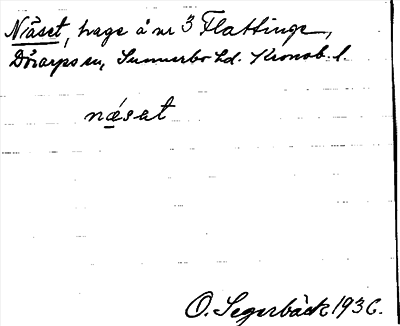 Näset, hage å nr 3 Flattinge,
Dörarps sn, Sunnerbo hd. Kronob. l.
næ̣set
O. Segerbäck 1936.